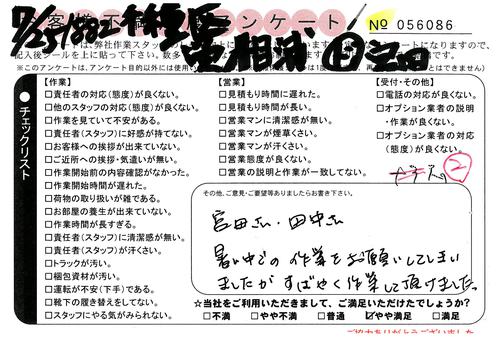 お客様不満 アンケート
No 056086
7/25
記入後シールを上に貼って下さい。
【作業】
□責任者の対応(態度)が良くない。
□他のスタッフの対応(態度)が良くない。
□作業を見ていて不安がある。
□責任者(スタッフ)に好感が持てない。
□お客様への挨拶が出来ていない。
□ご近所への挨拶・気遣いが無い。
□作業開始前の内容確認がなかった。
□作業開始時間が遅れた。
□荷物の取り扱いが雑である。
□お部屋の養生が出来ていない。
□作業時間が長すぎる。
□責任者(スタッフ)に清潔感が無い。
□責任者(スタッフ)が汗さい。
□トラックが汚い。
□梱包資材が汚い。
□運転が不安(下手)である。
□靴下の履き替えをしてない。
□スタッフにやる気がみられない。
●チェックリスト
【営業】
□見積もり時間に遅れた。
□見積もり時間が長い。
□営業マンに清潔感が無い。
□営業マンが煙草くさい。
□営業マンが汗さい。
□営業態度が良くない。
□営業の説明と作業が一致してない。
【受付・その他】
□電話の対応が良くない。
□オプション業者の説明
・作業が良くない。
□オプション業者の対応
(態度)が良くない。
2
その他、ご意見・ご要望等ありましたらお書き下さい。
宮田さん・田中さん
暑い中での作業をお願いしてしまい
ましたがすばやく作業して頂けました。
☆当社をご利用いただきまして、ご満足いただけたでしょうか?
□不満 □やや不満 □普通 ☑やや満足 □満足
ご協力ありがとうございました